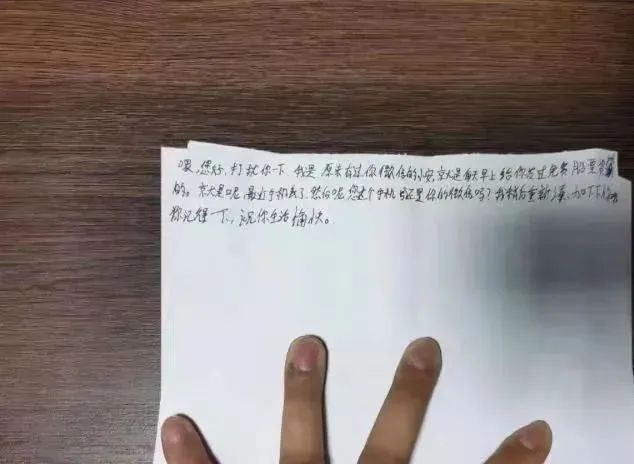 喂,您好,打扰你一下 我是 原来有过你微信的小安,就是每天早上给你发过免费股票
的。就是呢 最近手机丢了,然后呢,您这个手机号还是你的微信吗?我稍后重新 添加下
你记得一下,祝你生活愉快。